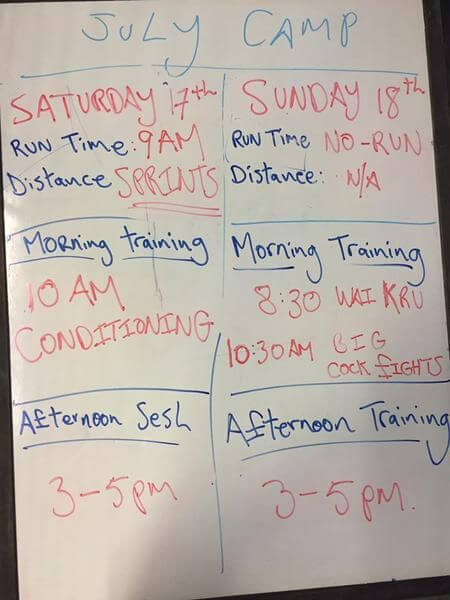 JULY CAMP
SATURDAY 17th
RUN Time: 9AM
Distance SPRINTS
Morning training
10 AM
CONDITIONING
Afternoon Sesh
3-5pm
SUNDAY 18th
RUN Time NO-RUN
Distance: N/A
Morning Training
8:30 WAI KRU
10:30AM BIG
COCK FIGHTS
Afternoon Training
3-5pm.